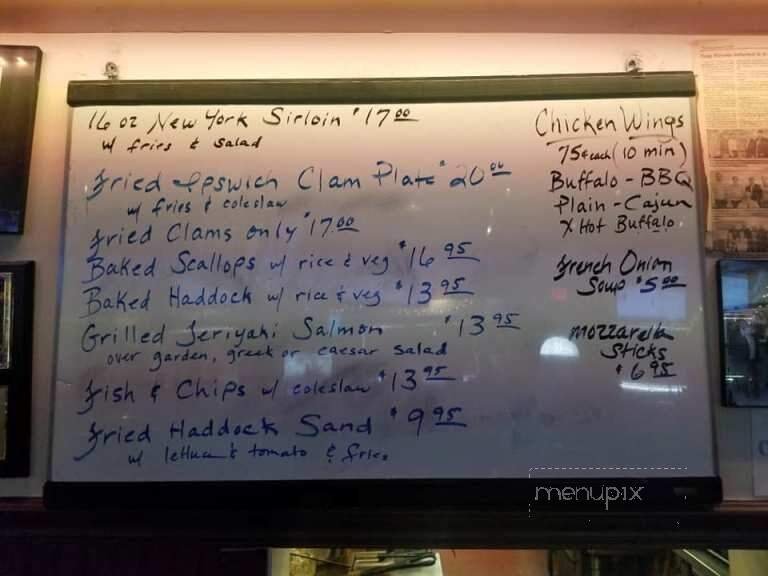 16 oz New York Sirloin $17.00
w/ fries & salad
Fried Ipswich Clam Plate $20.00
w/ fries & coleslaw
Fried Clams only $17.00
Baked Scallops w/ rice & veg $16.95
Baked Haddock w/ rice & veg $13.95
Grilled Teriyaki Salmon $13.95
over garden, greek or caesar salad
Fish & Chips w/ coleslaw $13.95
Fried Haddock Sand $9.95
w/ lettuce & tomato & fries
Chicken Wings
75¢ each (10 min)
Buffalo - BBQ
Plain - Cajun
X Hot Buffalo
French Onion
Soup $5.00
Mozzarella
Sticks
$6.95
menupix